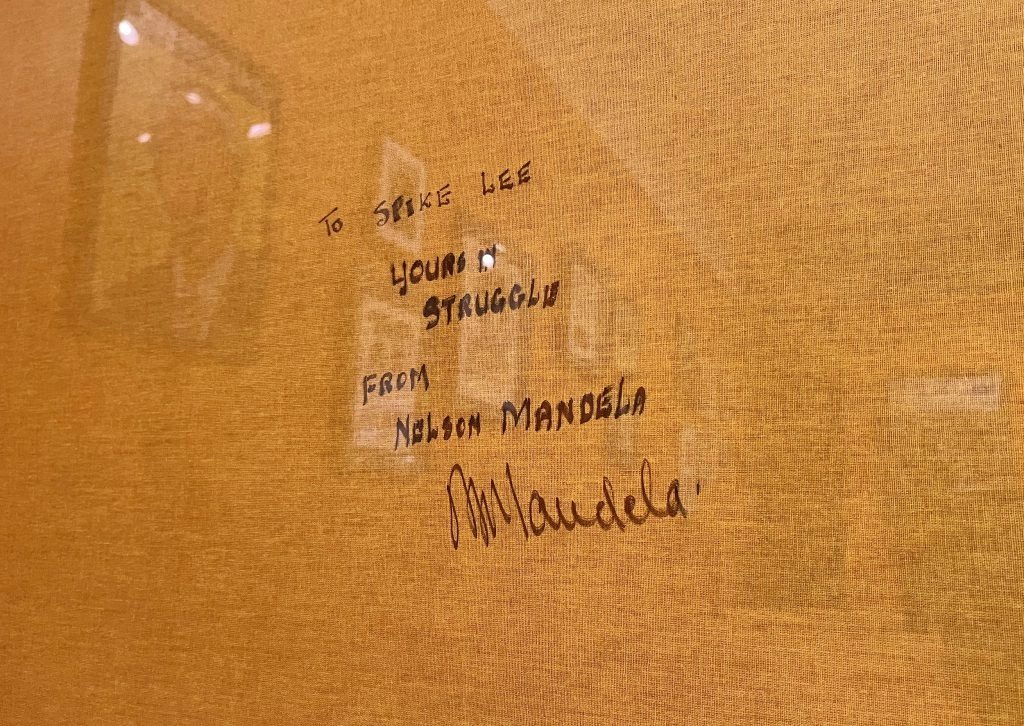 TO SPIKE LEE
YOURS IN
STRUGGLE
FROM
NELSON MANDELA
NMandela.